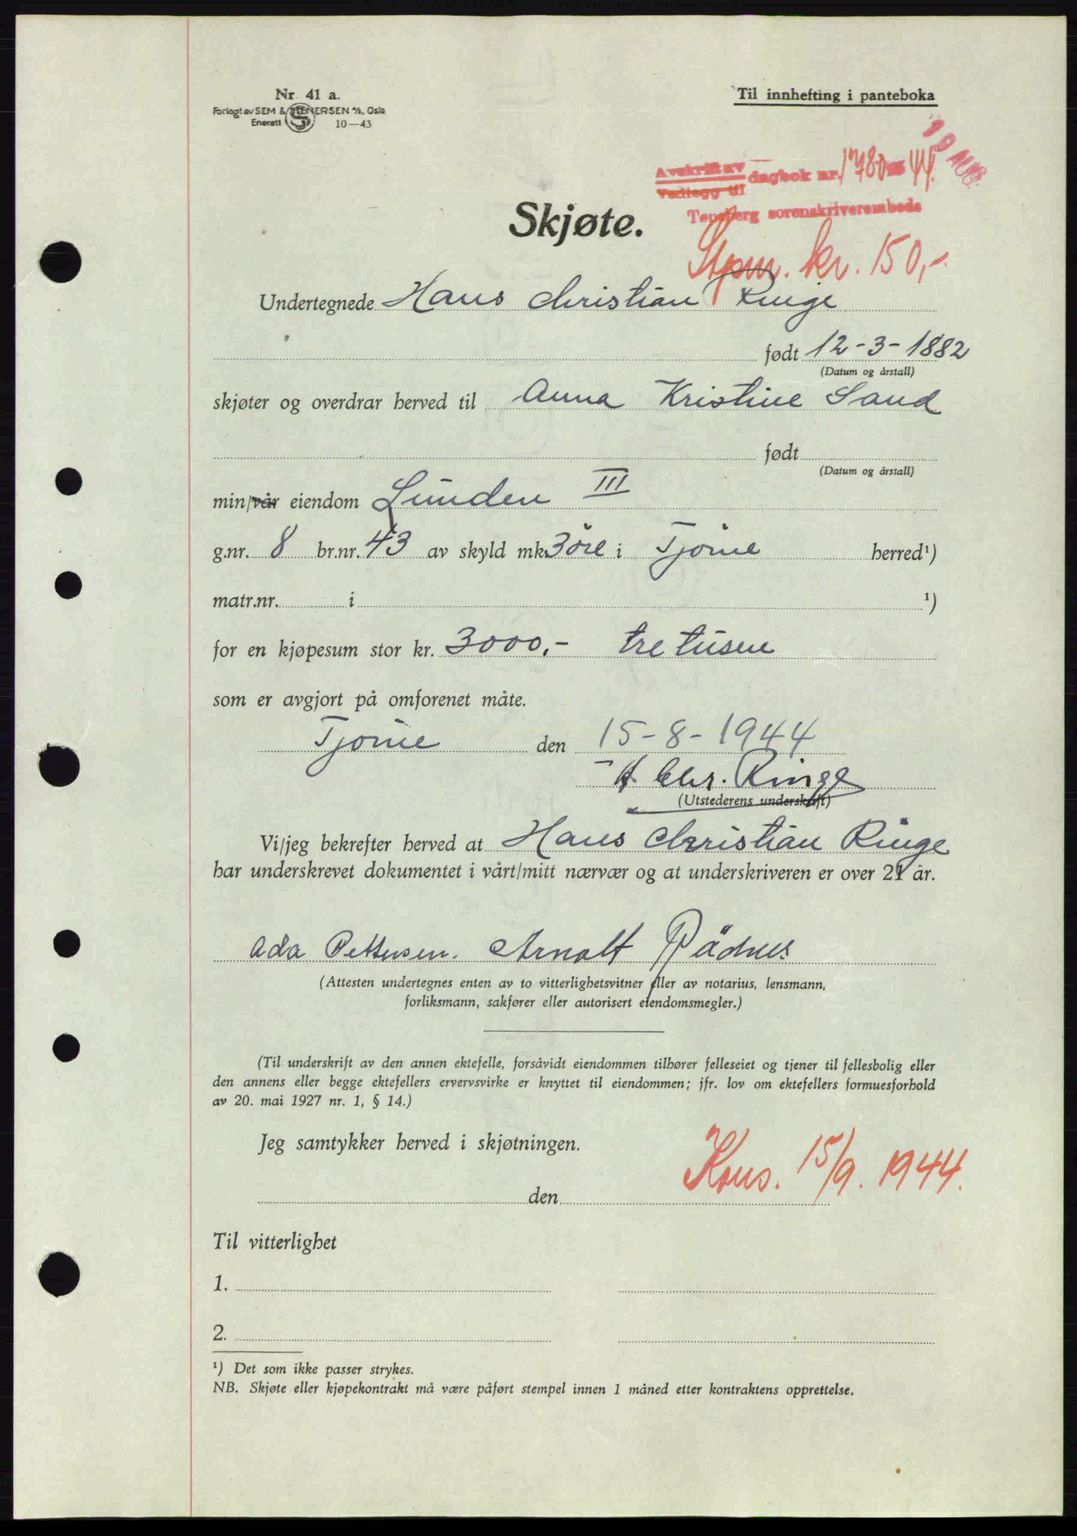 Nr. 41 a.
Forlagt av SEM & STENERSEN A/S, Oslo
Enerett 10—43
Til innhefting i panteboka
19 AUG
Avskrift av
Vedlegg til
dagbok nr. 1780 44.
Tønsberg sorenskriverembede
Skjøte.
Stpm. kr. 150,-
Undertegnede Hans Christian Ringe
født 12-3-1882
(Datum og årstall)
skjøter og overdrar herved til Anna Kristine Sand
født
(Datum og årstall)
min/vår eiendom Lunden III
g.nr. 8 br.nr. 43 av skyld mk. 3 öre i Tjöme herred¹)
matr.nr. i ¹)
for en kjøpesum stor kr. 3000,- tre tusen
som er avgjort på omforenet måte.
Tjöme den 15-8-1944
H Chr. Ringe
(Utstederens underskrift)
Vi/jeg bekrefter herved at Hans Christian Ringe
har underskrevet dokumentet i vårt/mitt nærvær og at underskriveren er over 21 år.
Ada Pettersen. Arnolf
(Attesten undertegnes enten av to vitterlighetsvitner eller av notarius, lensmann,
forliksmann, sakfører eller autorisert eiendomsmegler.)
(Til underskrift av den annen ektefelle, forsåvidt eiendommen tilhører felleseiet og tjener til fellesbolig eller
den annens eller begge ektefellers ervervsvirke er knyttet til eiendommen; jfr. lov om ektefellers formuesforhold
av 20. mai 1927 nr. 1, § 14.)
Jeg samtykker herved i skjøtningen.
Kons. 15/9. 1944.
den
Til vitterlighet
1.
2.
¹) Det som ikke passer strykes.
NB. Skjøte eller kjøpekontrakt må være påført stempel innen 1 måned etter kontraktens opprettelse.